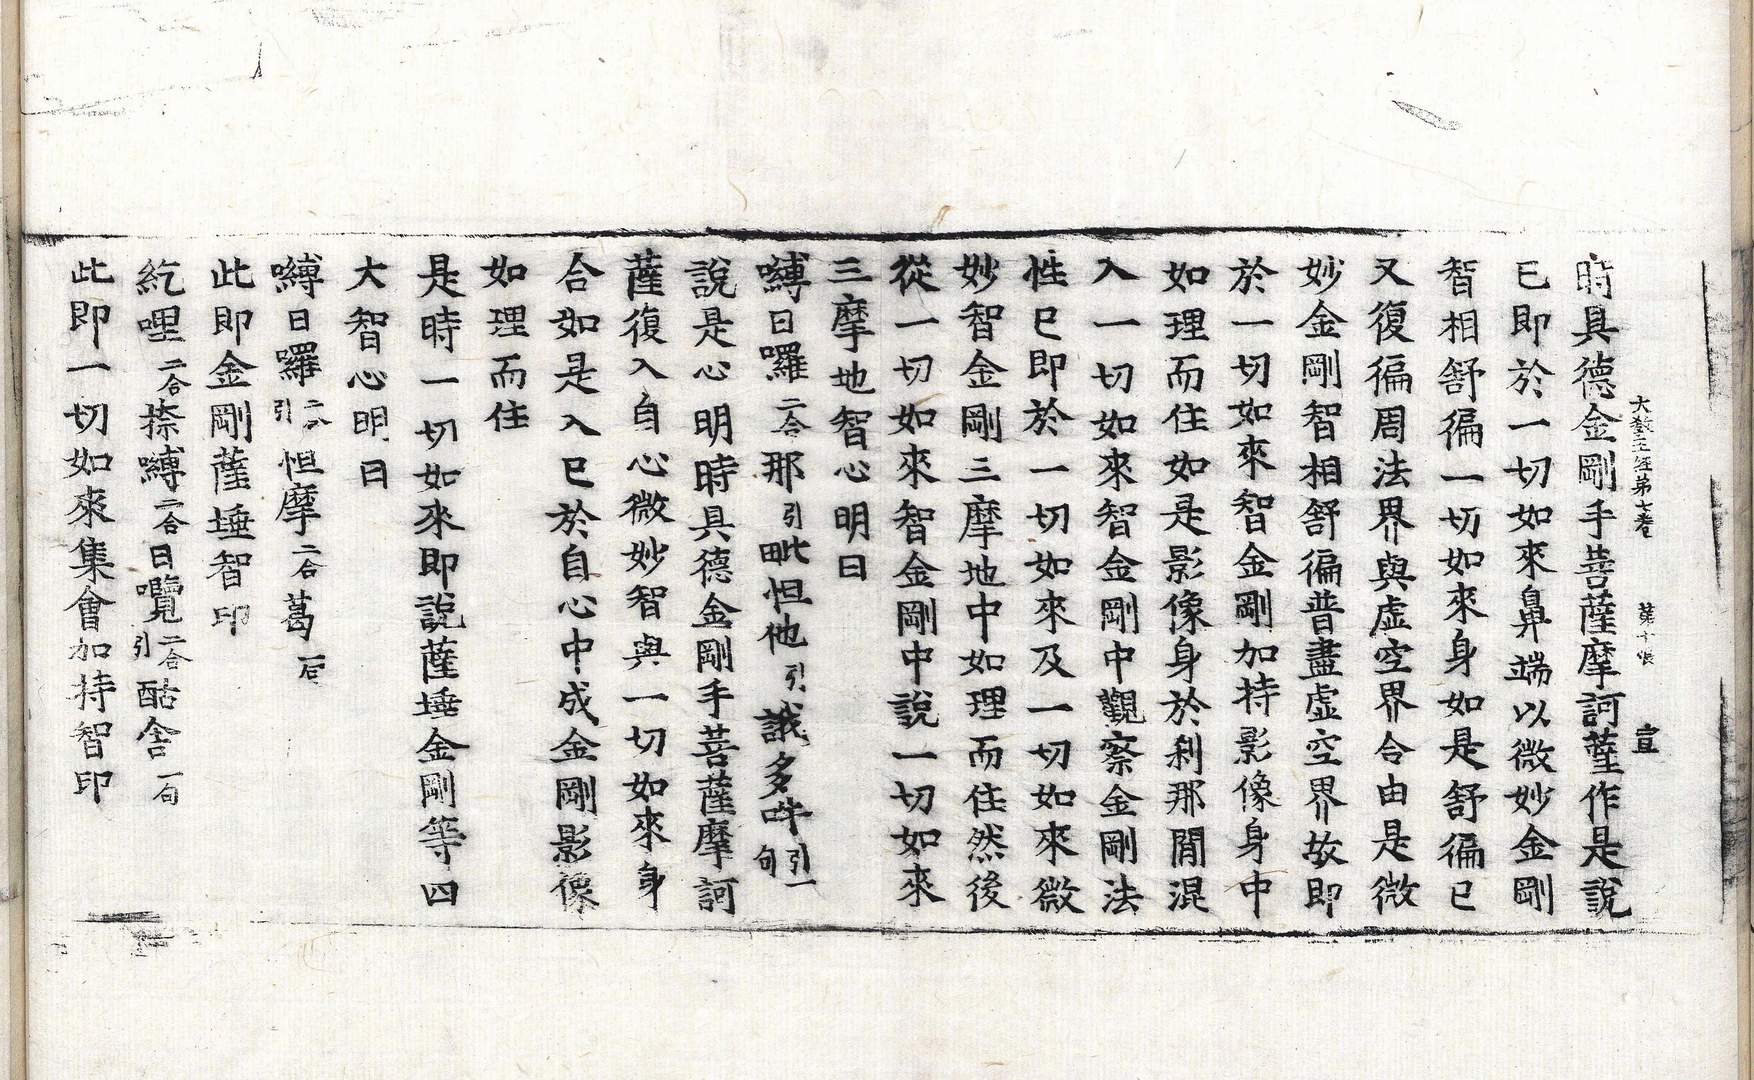 大敎王經第七卷 第十張 宣
時具德金剛手菩薩摩訶薩作是說
已即於一切如來鼻端以微妙金剛
智相舒徧一切如來身如是舒徧已
又復徧周法界與虛空界合由是微
妙金剛智相舒徧普盡虛空界故即
於一切如來智金剛加持影像身中
如理而住如是影像身於刹那間混
入一切如來智金剛中觀察金剛法
性已即於一切如來及一切如來微
妙智金剛三摩地中如理而住然後
從一切如來智金剛中說一切如來
三摩地智心明曰
嚩日囉二合那引毗怛他引誐多吽引一句
說是心明時具德金剛手菩薩摩訶
薩復入自心微妙智與一切如來身
合如是入已於自心中成金剛影像
如理而住
是時一切如來即說薩埵金剛等四
大智心明曰
嚩日囉二合引怛摩二合葛一句
此即金剛薩埵智印
紇哩二合捺嚩二合日囕二合引酤舍一句
此即一切如來集會加持智印